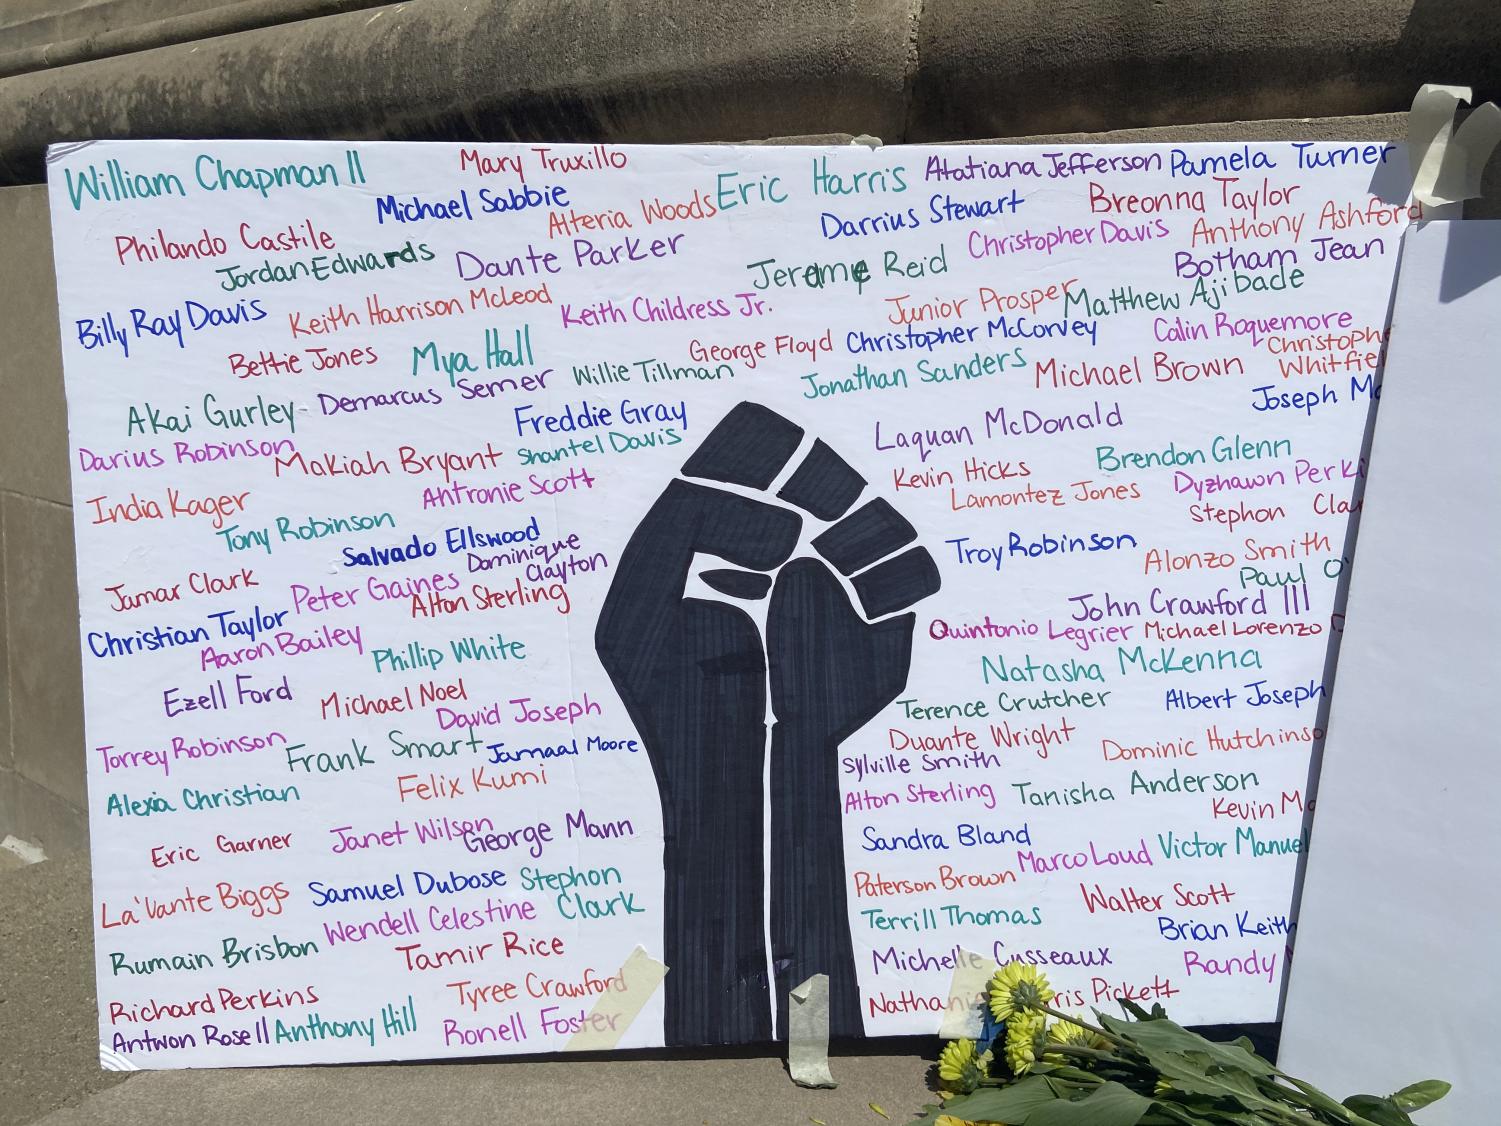 William Chapman II
Mary Truxillo
Eric Harris
Atatiana Jefferson
Pamela Turner
Michael Sabbie
Alteria Woods
Darrius Stewart
Breonna Taylor
Philando Castile
Jordan Edwards
Dante Parker
Jereme Reid
Christopher Davis
Anthony Ashford
Botham Jean
Billy Ray Davis
Keith Harrison McLeod
Keith Childress Jr.
Junior Prosper
Matthew Ajibade
Bettie Jones
Mya Hall
George Floyd
Christopher McCorvey
Calin Roquemore
Christophe
Whitfiel
Akai Gurley
Demarcus Semer
Willie Tillman
Jonathan Sanders
Michael Brown
Joseph
Freddie Gray
Laquan McDonald
Darius Robinson
Makiah Bryant
Shantel Davis
Kevin Hicks
Brendon Glenn
India Kager
Antronie Scott
Lamontez Jones
Dyzhawn Perki
Stephon Cla
Tony Robinson
Salvado Ellswood
Dominique
Clayton
Troy Robinson
Alonzo Smith
Paul O'
Jamar Clark
Peter Gaines
Alton Sterling
John Crawford III
Christian Taylor
Aaron Bailey
Phillip White
Quintonio Legrier
Michael Lorenzo
Natasha McKenna
Ezell Ford
Michael Noel
David Joseph
Terence Crutcher
Albert Joseph
Torrey Robinson
Frank Smart
Jamaal Moore
Duante Wright
Dominic Hutchinso
Sylville Smith
Alexia Christian
Felix Kumi
Alton Sterling
Tanisha Anderson
Kevin M
Eric Garner
Janet Wilson
George Mann
Sandra Bland
Marco Loud
Victor Manuel
La'Vante Biggs
Samuel Dubose
Stephon
Clark
Paterson Brown
Walter Scott
Wendell Celestine
Terrill Thomas
Brian Keith
Rumain Brisbon
Tamir Rice
Michelle Cusseaux
Randy
Richard Perkins
Tyree Crawford
Pickett
Antwon Rose II
Anthony Hill
Ronell Foster